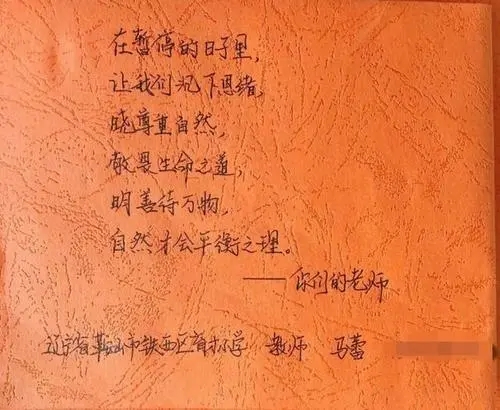 在暂停的日子里,
让我们沉下思绪,
晓尊重自然,
敬畏生命之道,
明善待万物,
自然才会平衡之理。
——你们的老师
辽宁省鞍山市铁西区育才小学 教师 马蕾